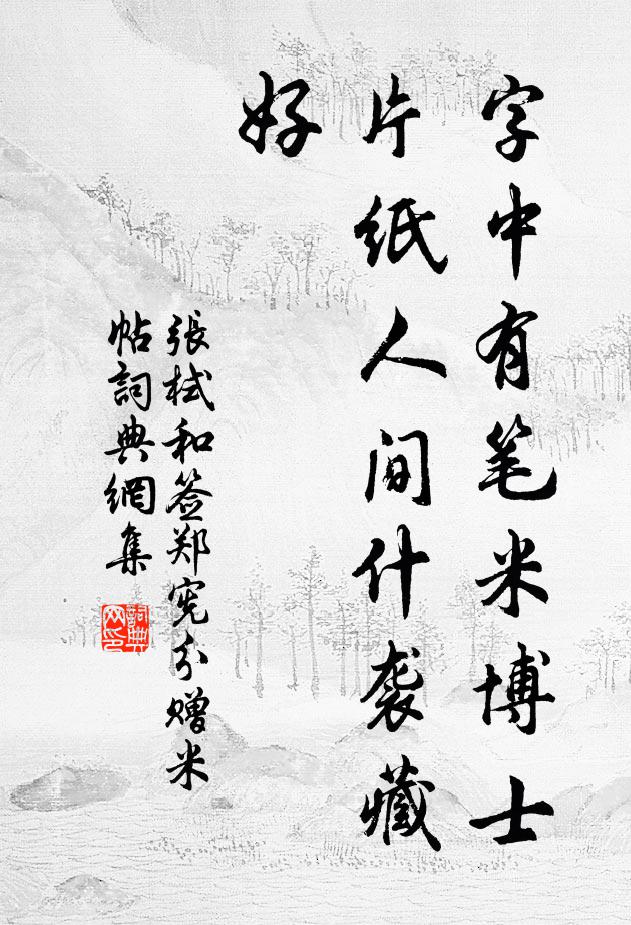 字中有笔米博士
片纸人间什袭藏
好
張栻和签郑宪分赠米
帖詞典網集
詞典
网印